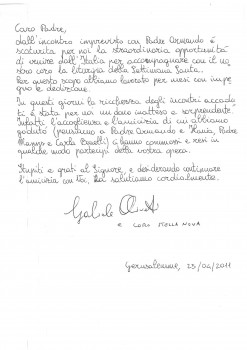 Caro Padre,
dall'incontro imprevisto con Padre Armando è
scaturita per noi la straordinaria opportunità
di venire dall'Italia per accompagnare con il no
stro coro la liturgia della Settimana Santa.
Per questo scopo abbiamo lavorato per mesi con impe
gno e dedizione.
In questi giorni la ricchezza degli incontri accadu
ti è stata per noi un dono inatteso e sorprendente.
Infatti l'accoglienza e l'amicizia di cui abbiamo
goduto (pensiamo a Padre Armando e Hania, Padre
e Carla Benelli) ci hanno commossi e resi in
qualche modo partecipi della vostra opera.
Stupiti e grati al Signore, e desiderando continuare
l'amicizia con Voi, Vi salutiamo cordialmente.
E CORO STELLA NOVA
Gerusalemme, 25/04/2011